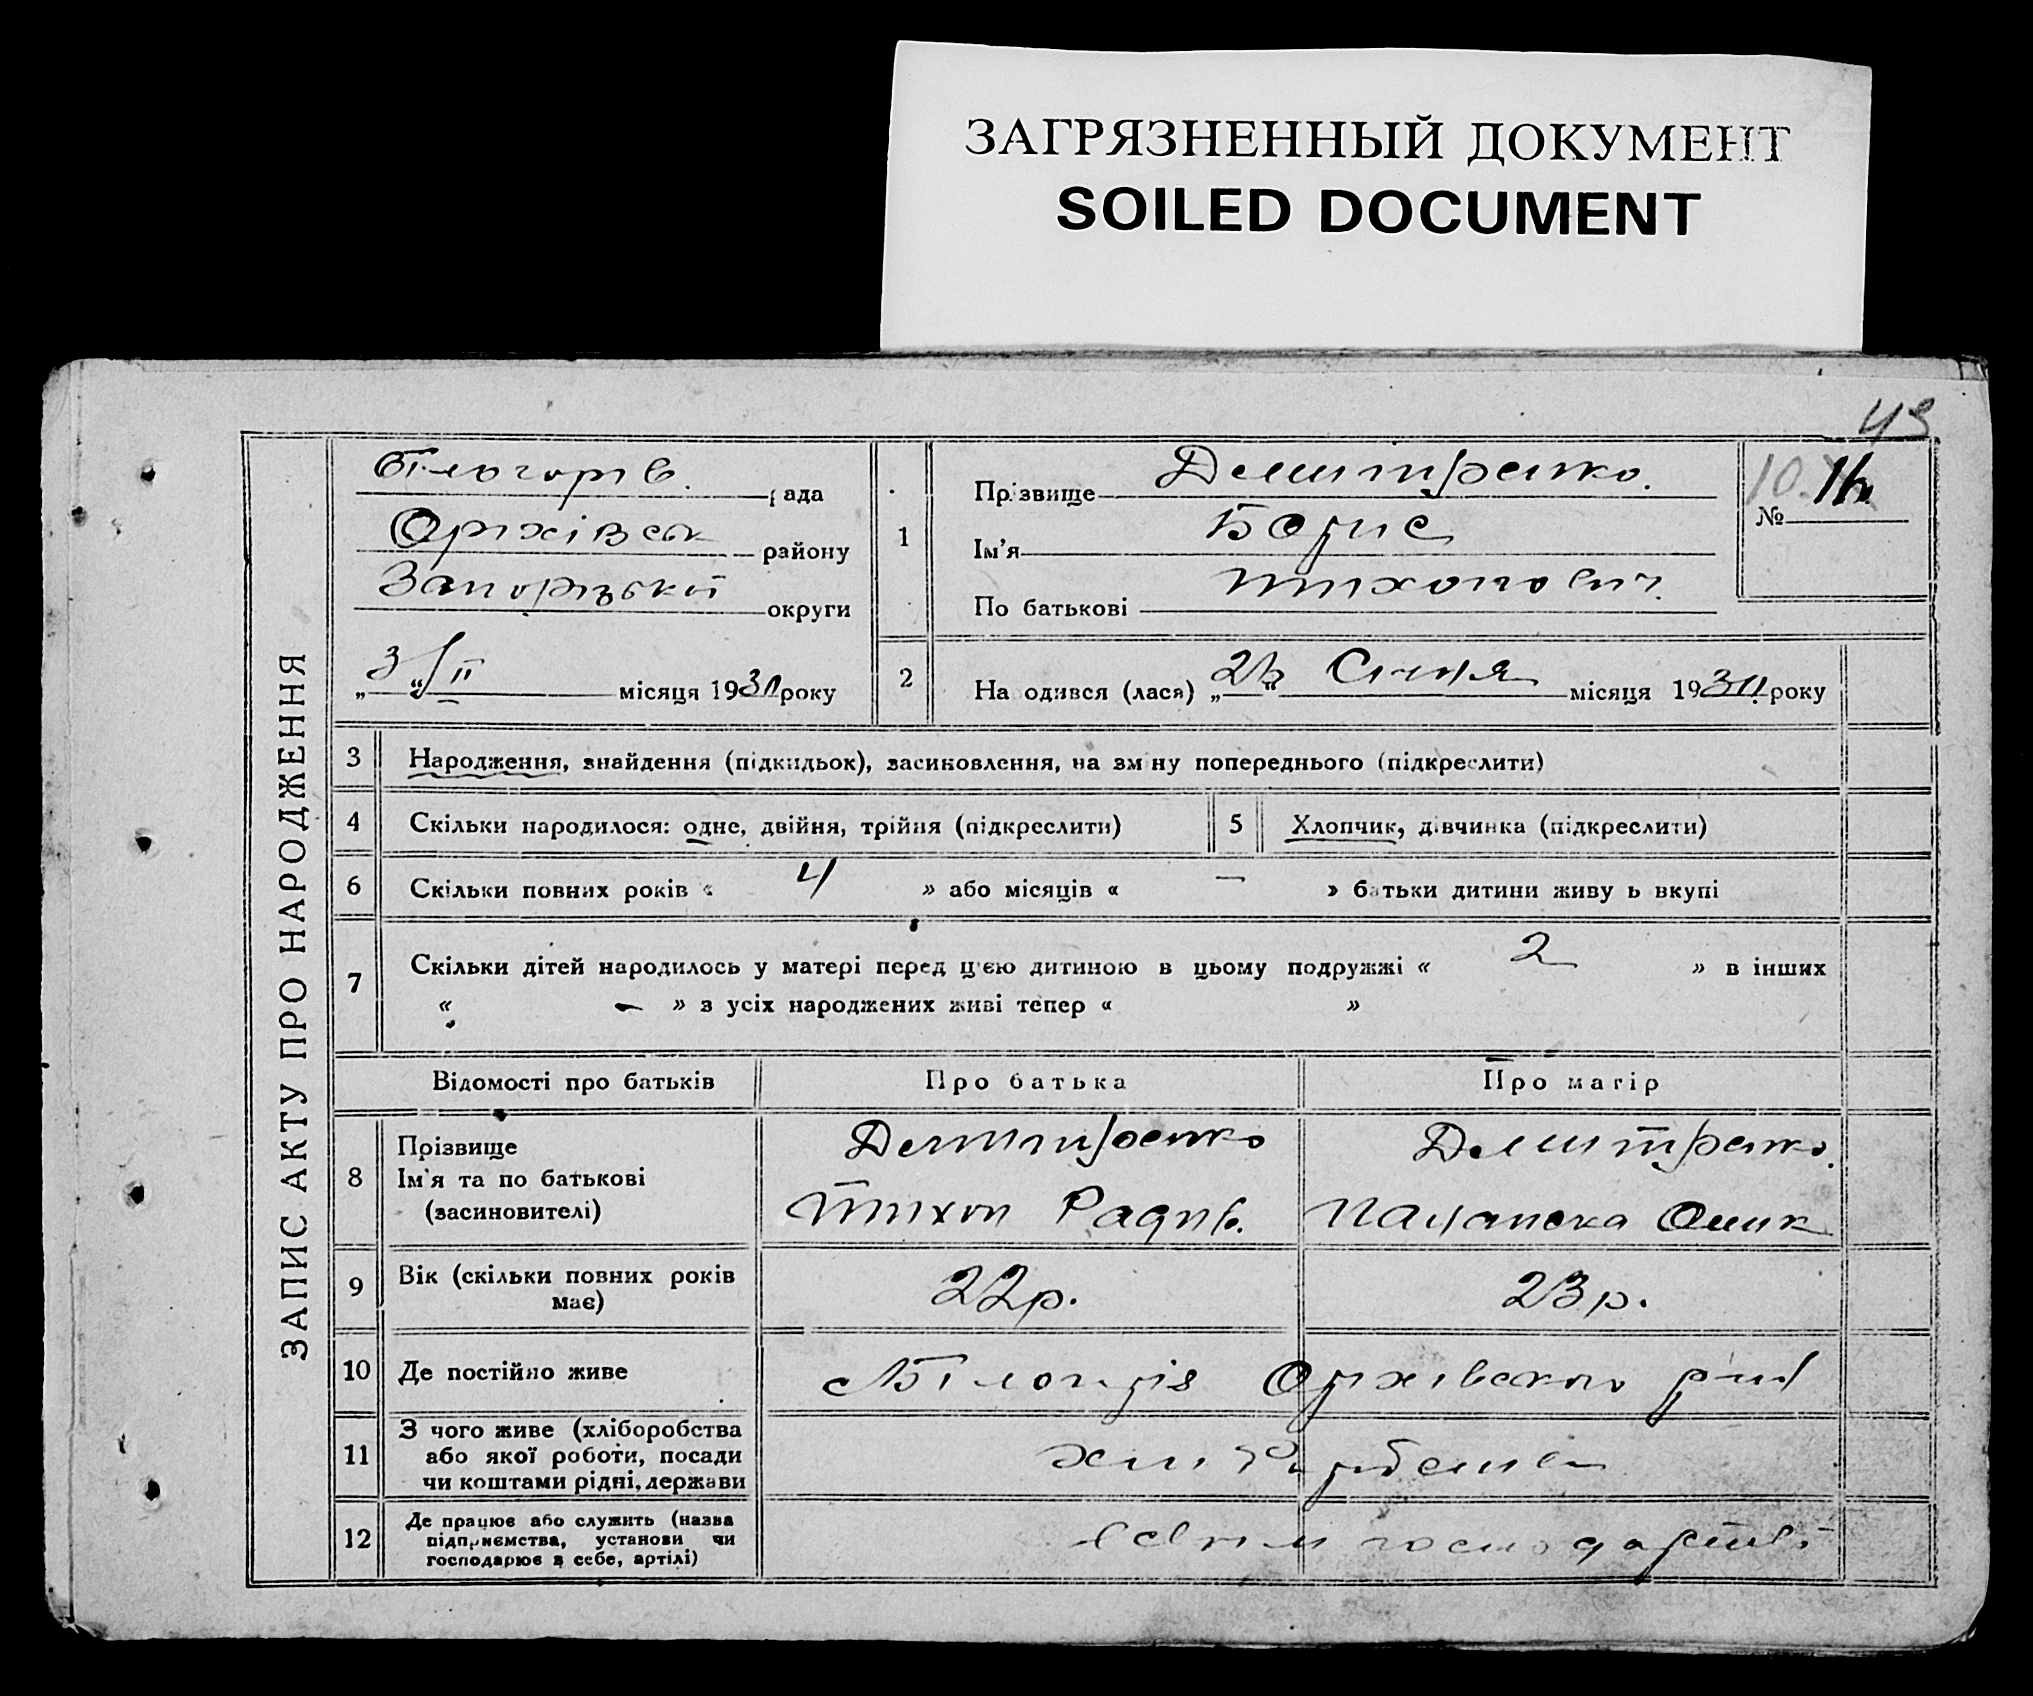 ЗАГРЯЗНЕННЫЙ ДОКУМЕНТ
SOILED DOCUMENT
43
ЗАПИС АКТУ ПРО НАРОДЖЕННЯ
Білогорів. рада
Оріхівськ району
Запорізької округи
„3“ II місяця 1930 року
1
Прізвище Демитренко.
Ім'я Борис
По батькові Тихонович.
№ 10
2 Народився (лася) „23“ Січня місяця 1930 року
3 Народження, знайдення (підкидьок), засиновлення, на зміну попереднього (підкреслити)
4 Скільки народилося: одне, двійня, трійня (підкреслити)
5 Хлопчик, дівчинка (підкреслити)
6 Скільки повних років « 4 » або місяців « — » батьки дитини живуть вкупі
7 Скільки дітей народилось у матері перед цією дитиною в цьому подружжі « 2 » в інших
« — » з усіх народжених живі тепер « »
Відомості про батьків Про батька Про матір
8 Прізвище
Ім'я та по батькові
(засиновителі)
Демитренко
Тихон Радив.
Демитренко.
Палажка
9 Вік (скільки повних років
має)
22р.
23р.
10 Де постійно живе
Білогіря Оріхівського
11 З чого живе (хліборобства
або якої роботи, посади
чи коштами рідні, держави
хліборобства
12 Де працює або служить (назва
підприємства, установи чи
господарює в себе, артілі)
в своїм господарстві